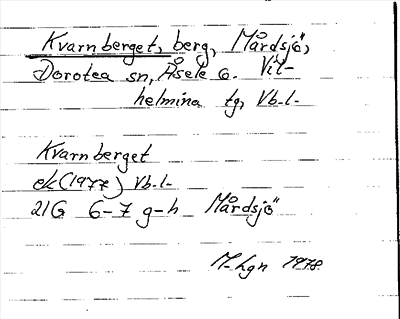 Kvarnberget, berg, Mårdsjö,
Dorotea sn, Åsele o. Vil-
helmina tg, Vb.l.
Kvarnberget
ek(1977) Vb.l.
21G 6-7 g-h Mårdsjö
M-hgn 1978